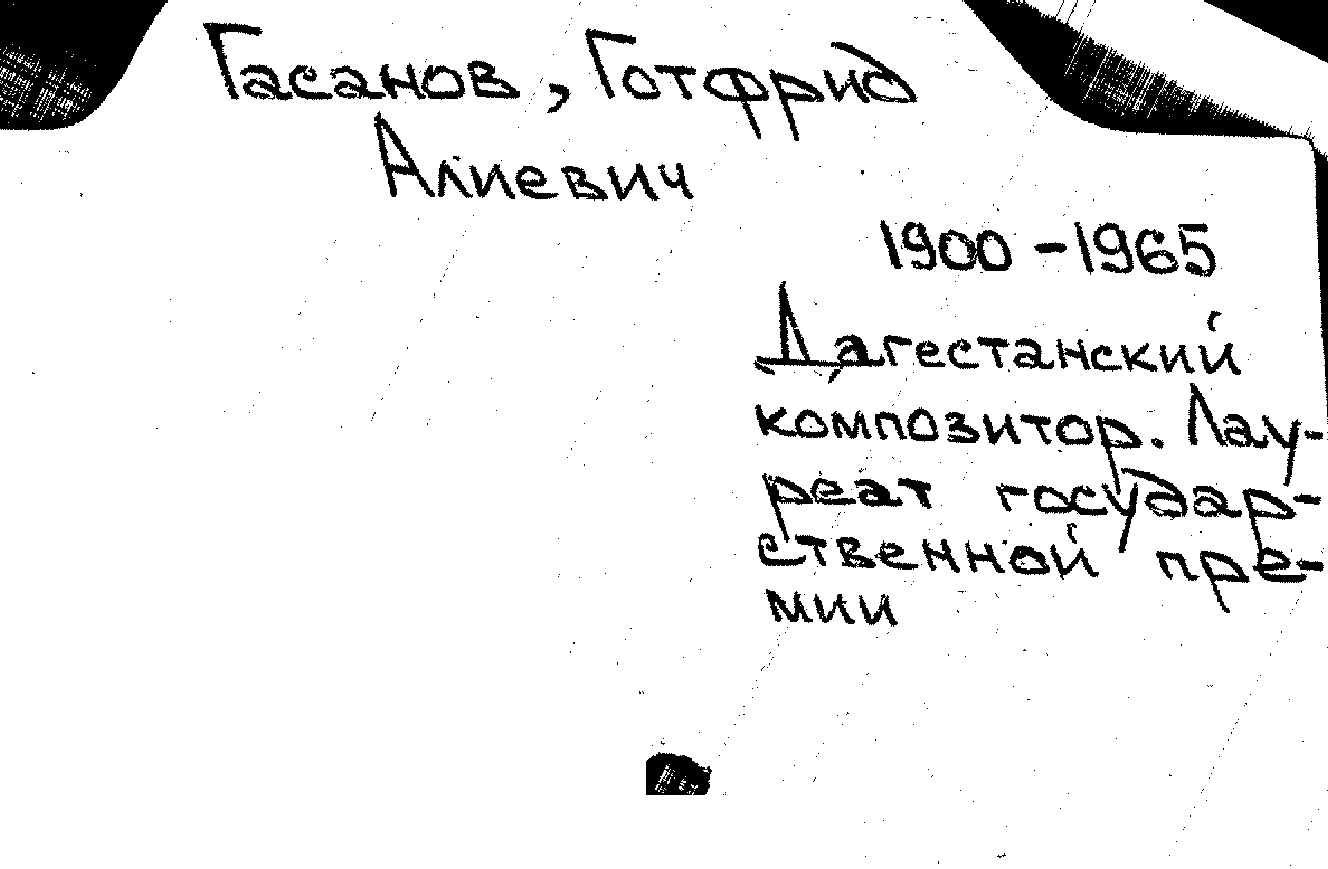 Гасанов, Готфрид
Алиевич
1900-1965
Дагестанский
композитор. Лау-
реат государ-
ственной пре-
мии